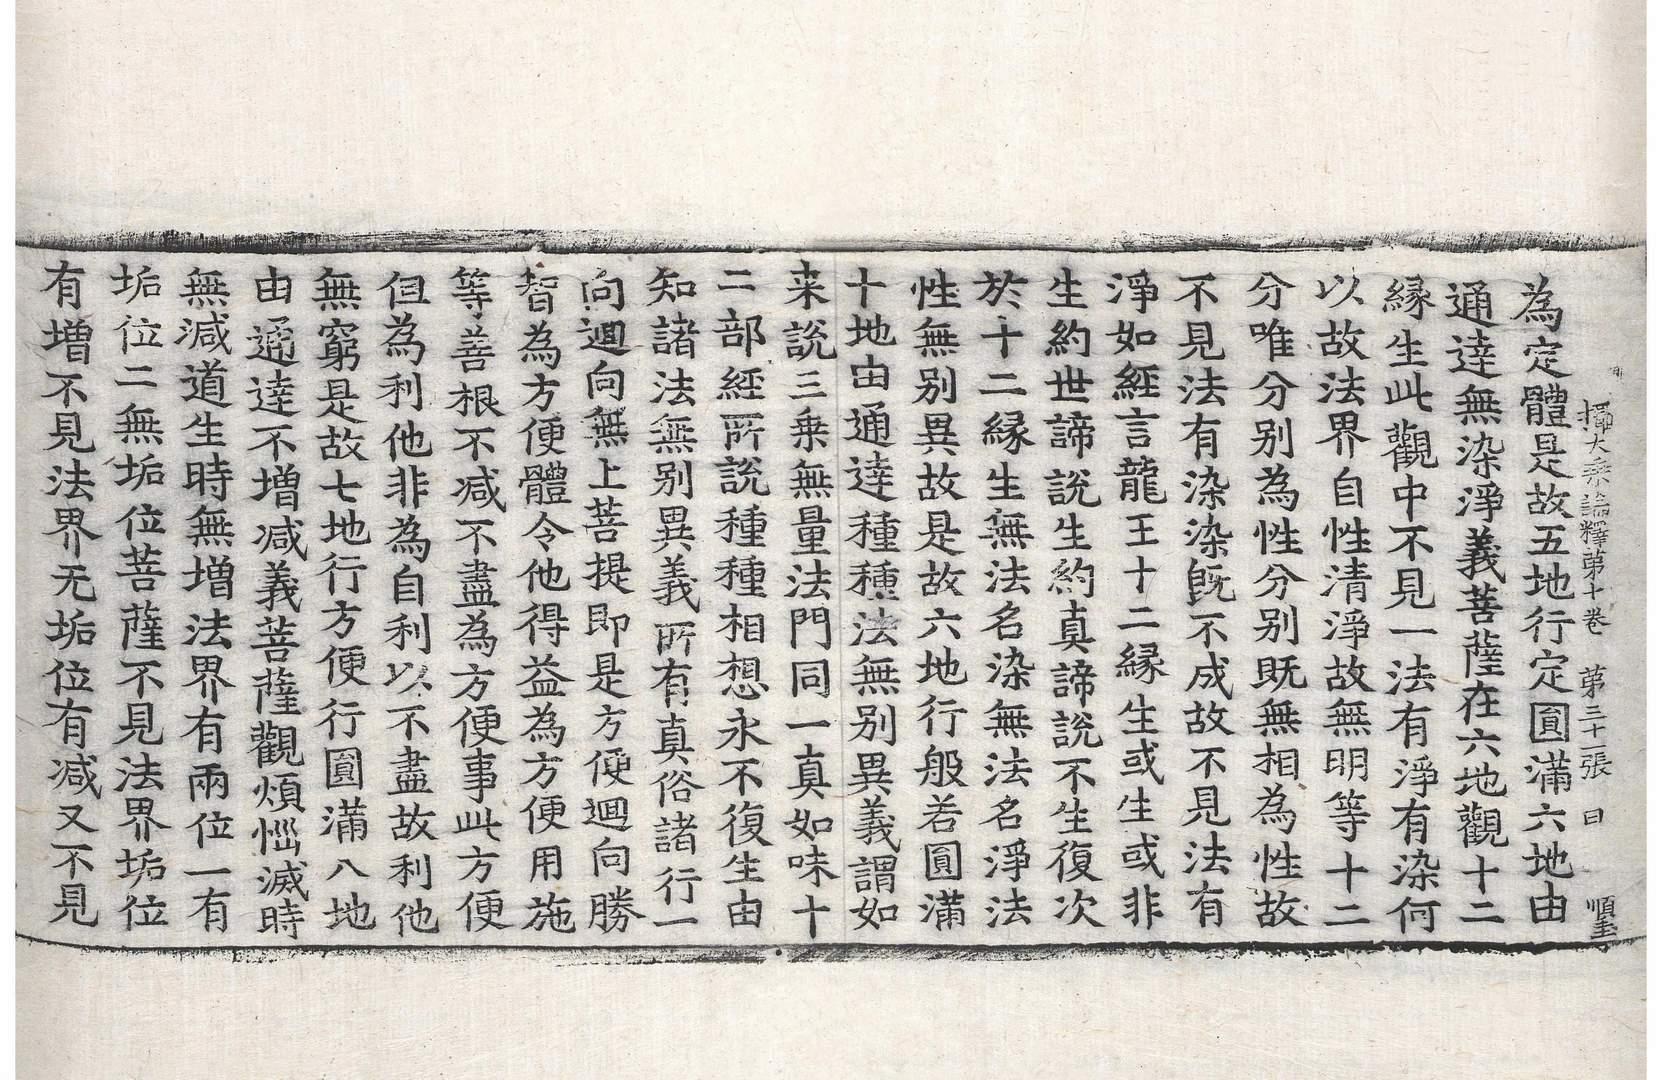 攝大乘論釋第十卷 第三十二張 曰 順聖
為定體是故五地行定圓滿六地由
通達無染淨義菩薩在六地觀十二
縁生此觀中不見一法有淨有染何
以故法界自性清淨故無明等十二
分唯分別為性分別既無相為性故
不見法有染染既不成故不見法有
淨如經言龍王十二縁生或生或非
生約世諦說生約真諦說不生復次
於十二縁生無法名染無法名淨法
性無別異故是故六地行般若圓滿
十地由通達種種法無別異義謂如
来說三乗無量法門同一真如味十
二部經所說種種相想永不復生由
知諸法無別異義所有真俗諸行一
向迴向無上菩提即是方便迴向勝
智為方便體令他得益為方便用施
等善根不减不盡為方便事此方便
但為利他非為自利以不盡故利他
無窮是故七地行方便行圓滿八地
由通達不增减義菩薩觀煩惱滅時
無減道生時無增法界有兩位一有
垢位二無垢位菩薩不見法界垢位
有增不見法界无垢位有减又不見